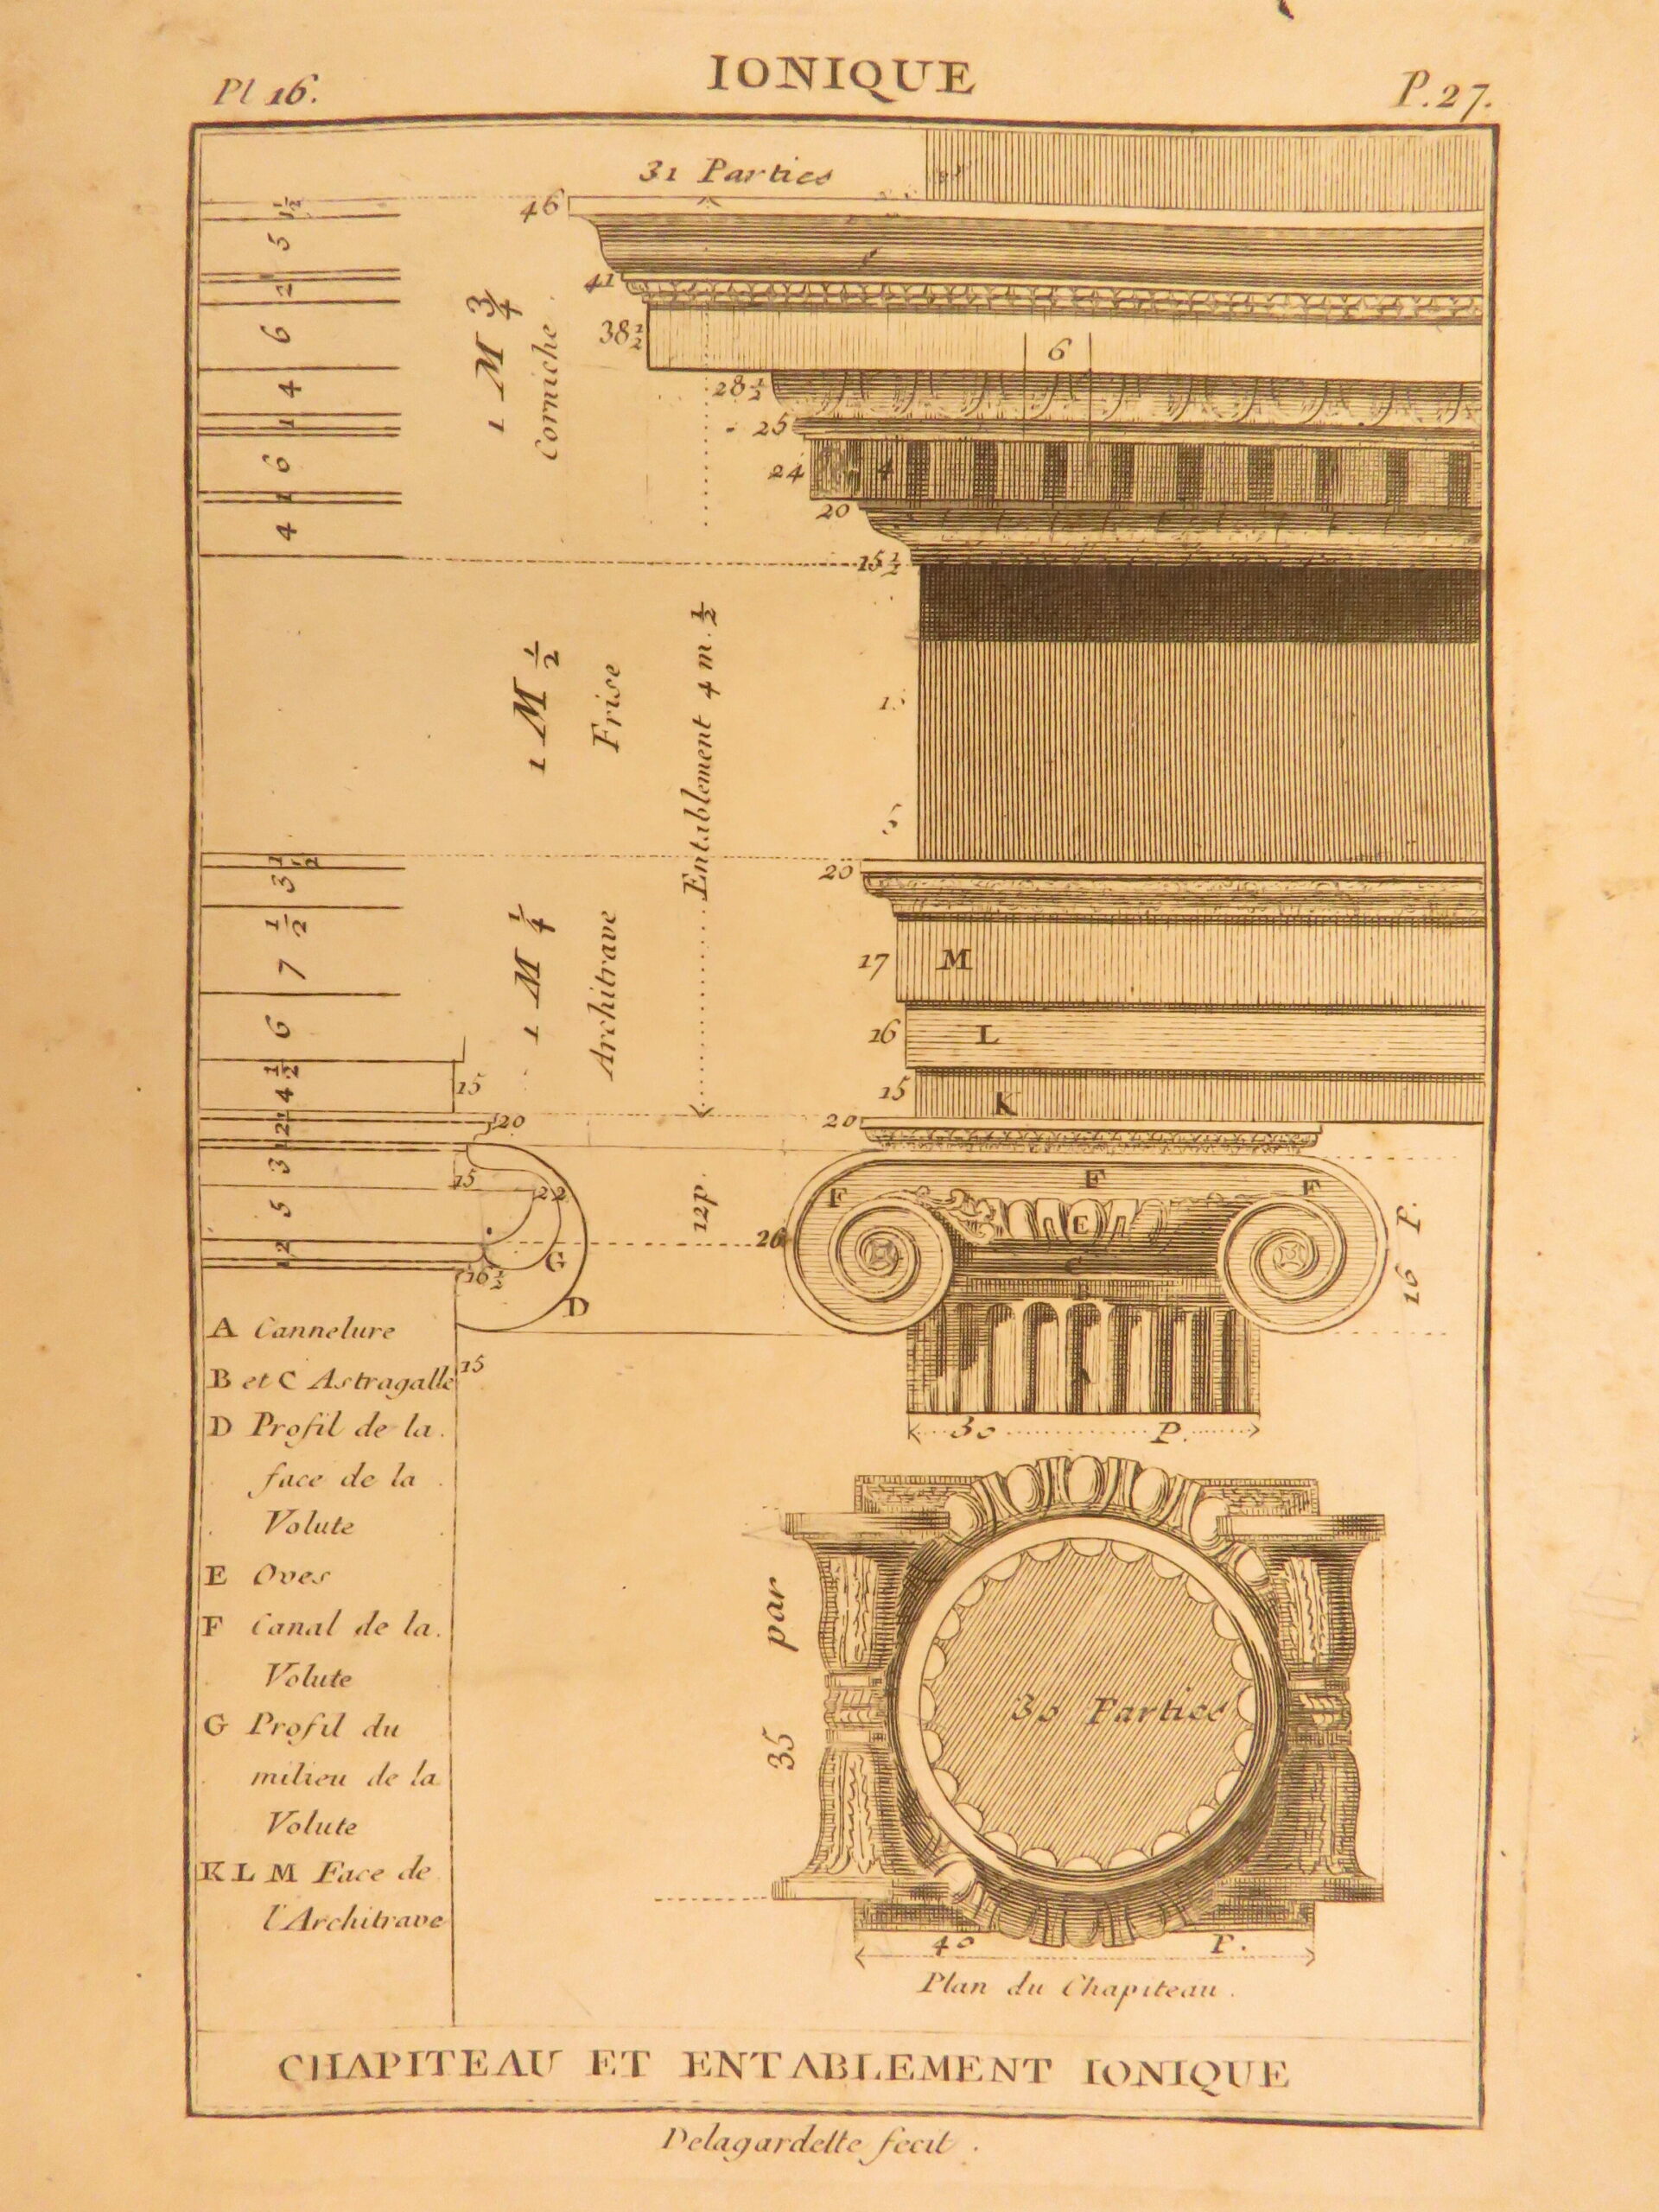 Pl 16.
IONIQUE
P. 27.
31 Parties
46
1 1/2
5
41
2
1 M 3/4
Corniche
6
38 1/2
6
4
28 1/2
1
25
6
24
4
1
20
4
15 1/2
1 M 1/2
Frise
Entablement 4 m. 1/2
15
1 1/2
20
3
7 1/2
17
M
1 M 1/4
Architrave
6
16
L
4 1/2
15
15
K
1
20
20
2
1
3
15
22
12 p.
F
F
F
E
16 P.
5
26
2
G
C
1
16 1/2
B
D
A Cannelure
B et C Astragalle
15
D Profil de la
face de la
Volute
E Oves
F Canal de la
Volute
G Profil du
milieu de la
Volute
K L M Face de
l'Architrave
30 P.
35 par
30 Parties
40 P.
Plan du Chapiteau.
CHAPITEAU ET ENTABLEMENT IONIQUE
Delagardette fecit.